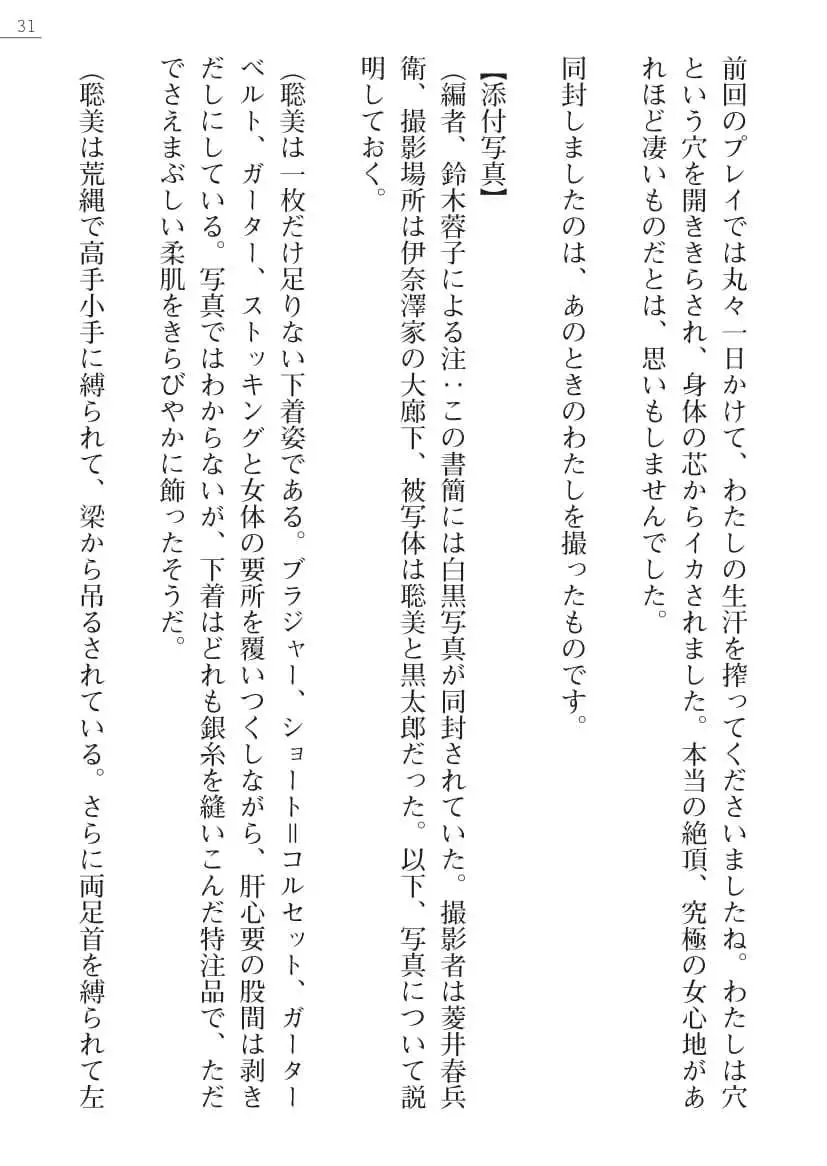 31
前回のプレイでは丸々一日かけて、わたしの生汗を搾ってくださいましたね。わたしは穴
という穴を開ききらされ、身体の芯からイカされました。本当の絶頂、究極の女心地があ
れほど凄いものだとは、思いもしませんでした。
同封しましたのは、あのときのわたしを撮ったものです。
【添付写真】
（編者、鈴木蓉子による注：この書簡には白黒写真が同封されていた。撮影者は菱井春兵
衛、撮影場所は伊奈澤家の大廊下、被写体は聡美と黒太郎だった。以下、写真について説
明しておく。
（聡美は一枚だけ足りない下着姿である。ブラジャー、ショート＝コルセット、ガーター
ベルト、ガーター、ストッキングと女体の要所を覆いつくしながら、肝心要の股間は剥き
だしにしている。写真ではわからないが、下着はどれも銀糸を縫いこんだ特注品で、ただ
でさえまぶしい柔肌をきらびやかに飾ったそうだ。
（聡美は荒縄で高手小手に縛られて、梁から吊るされている。さらに両足首を縛られて左